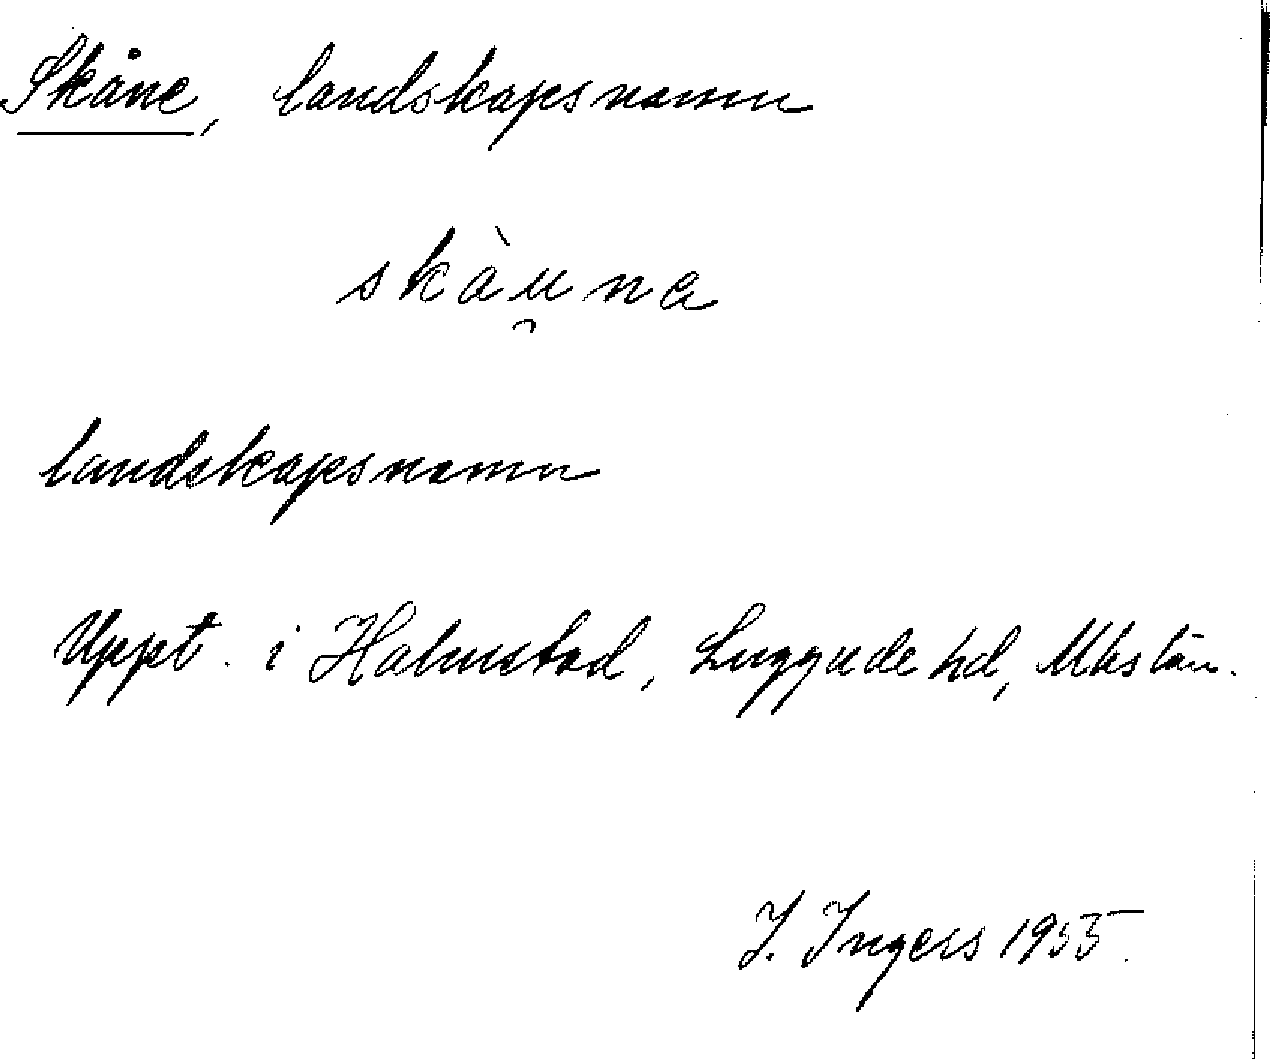 Skåne, landskapsnamn
skàu̯na
landskapsnamn
Uppt. i Halmstad, Luggude hd, Mhs län.
I. Ingers 1955.